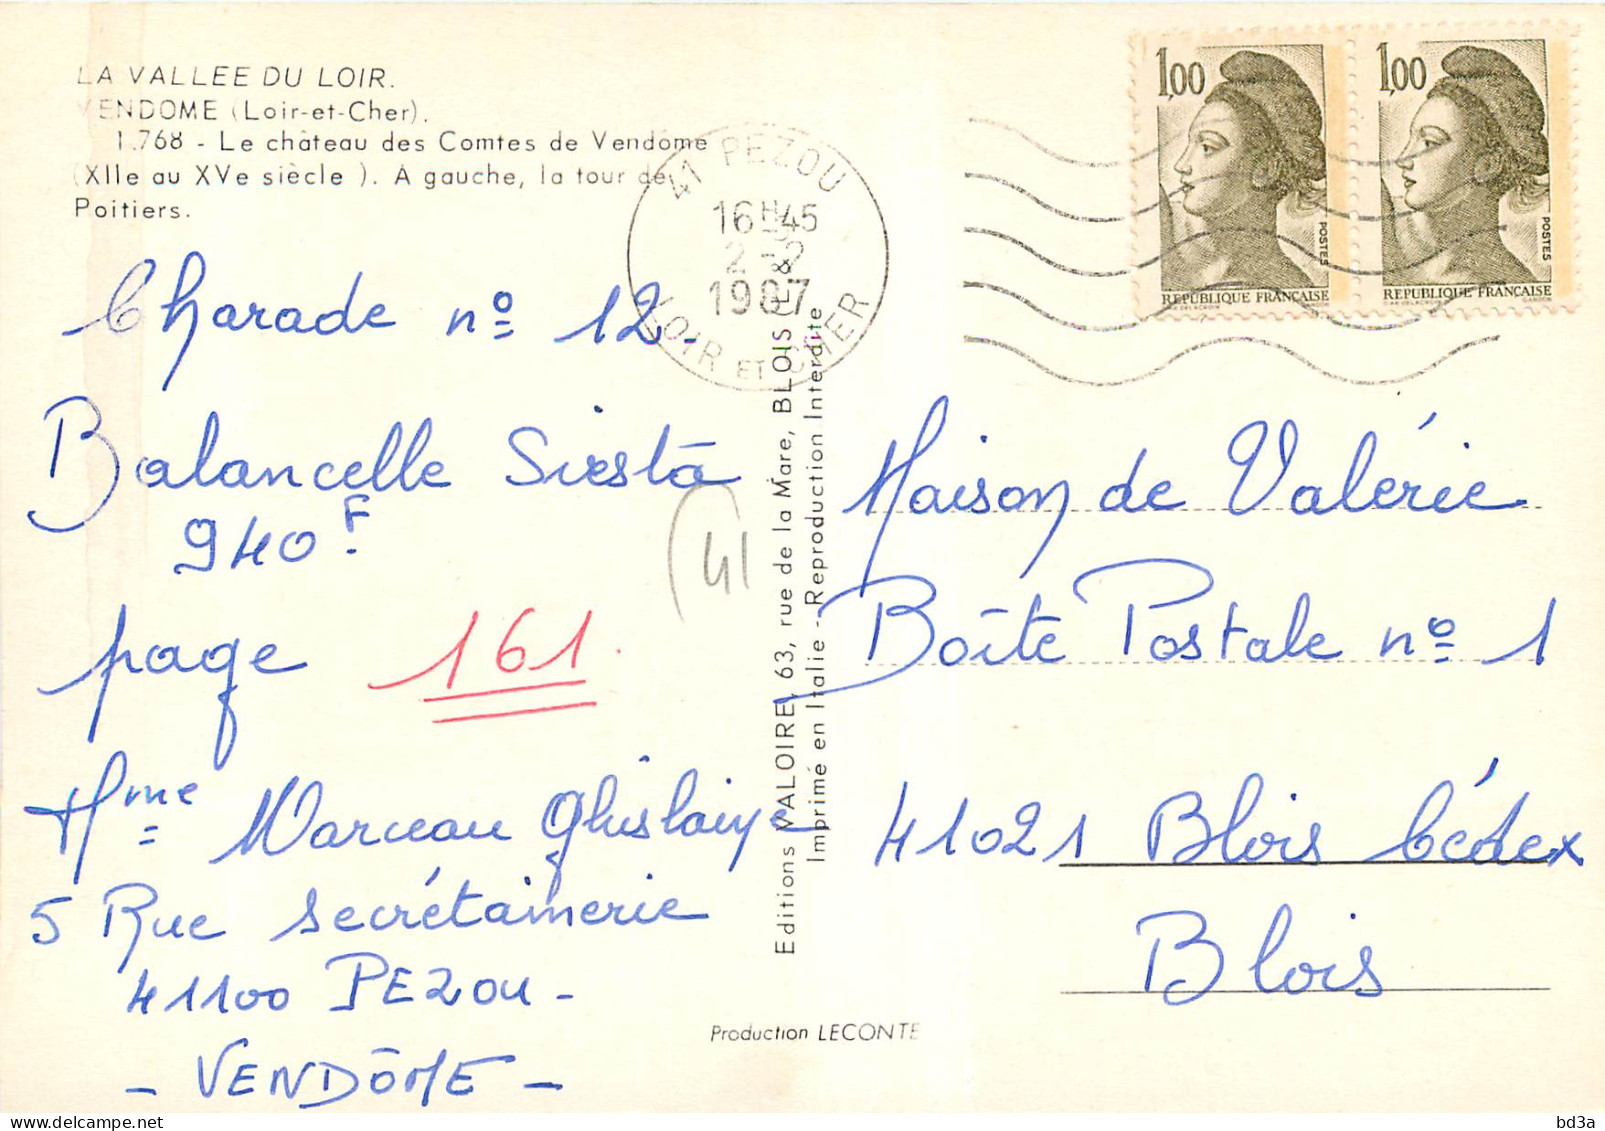 LA VALLEE DU LOIR.
VENDOME (Loir-et-Cher).
1.768 - Le château des Comtes de Vendome
(XIIe au XVe siècle ). A gauche, la tour de
Poitiers.
41 PEZOU
16H45
2-2
1987
LOIR ET CHER
1,00
POSTES
REPUBLIQUE FRANÇAISE
1,00
POSTES
REPUBLIQUE FRANÇAISE
Charade nº 12.
Balancelle Siesta
940F.
page 161.
Mme Marceau Ghislaine
5 Rue secrétainerie
41100 PEZOU -
- VENDÔME -
41
Editions VALOIRE, 63, rue de la Mare, BLOIS
Imprimé en Italie - Reproduction Interdite
Maison de Valérie
Boîte Postale nº 1
41021 Blois Cédex
Blois
Production LECONTE
bd3a